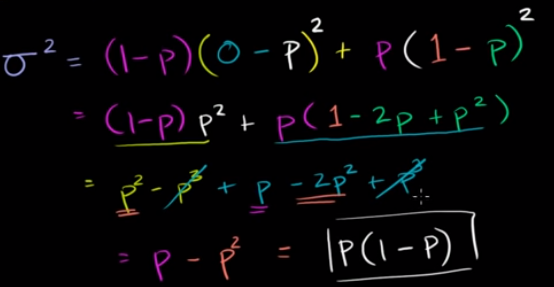 σ² = (1-p)(0 - p)² + p(1 - p)²
= (1-p) p² + p(1 - 2p + p²)
= p² - p³ + p - 2p² + p³
= p - p² = p(1-p)